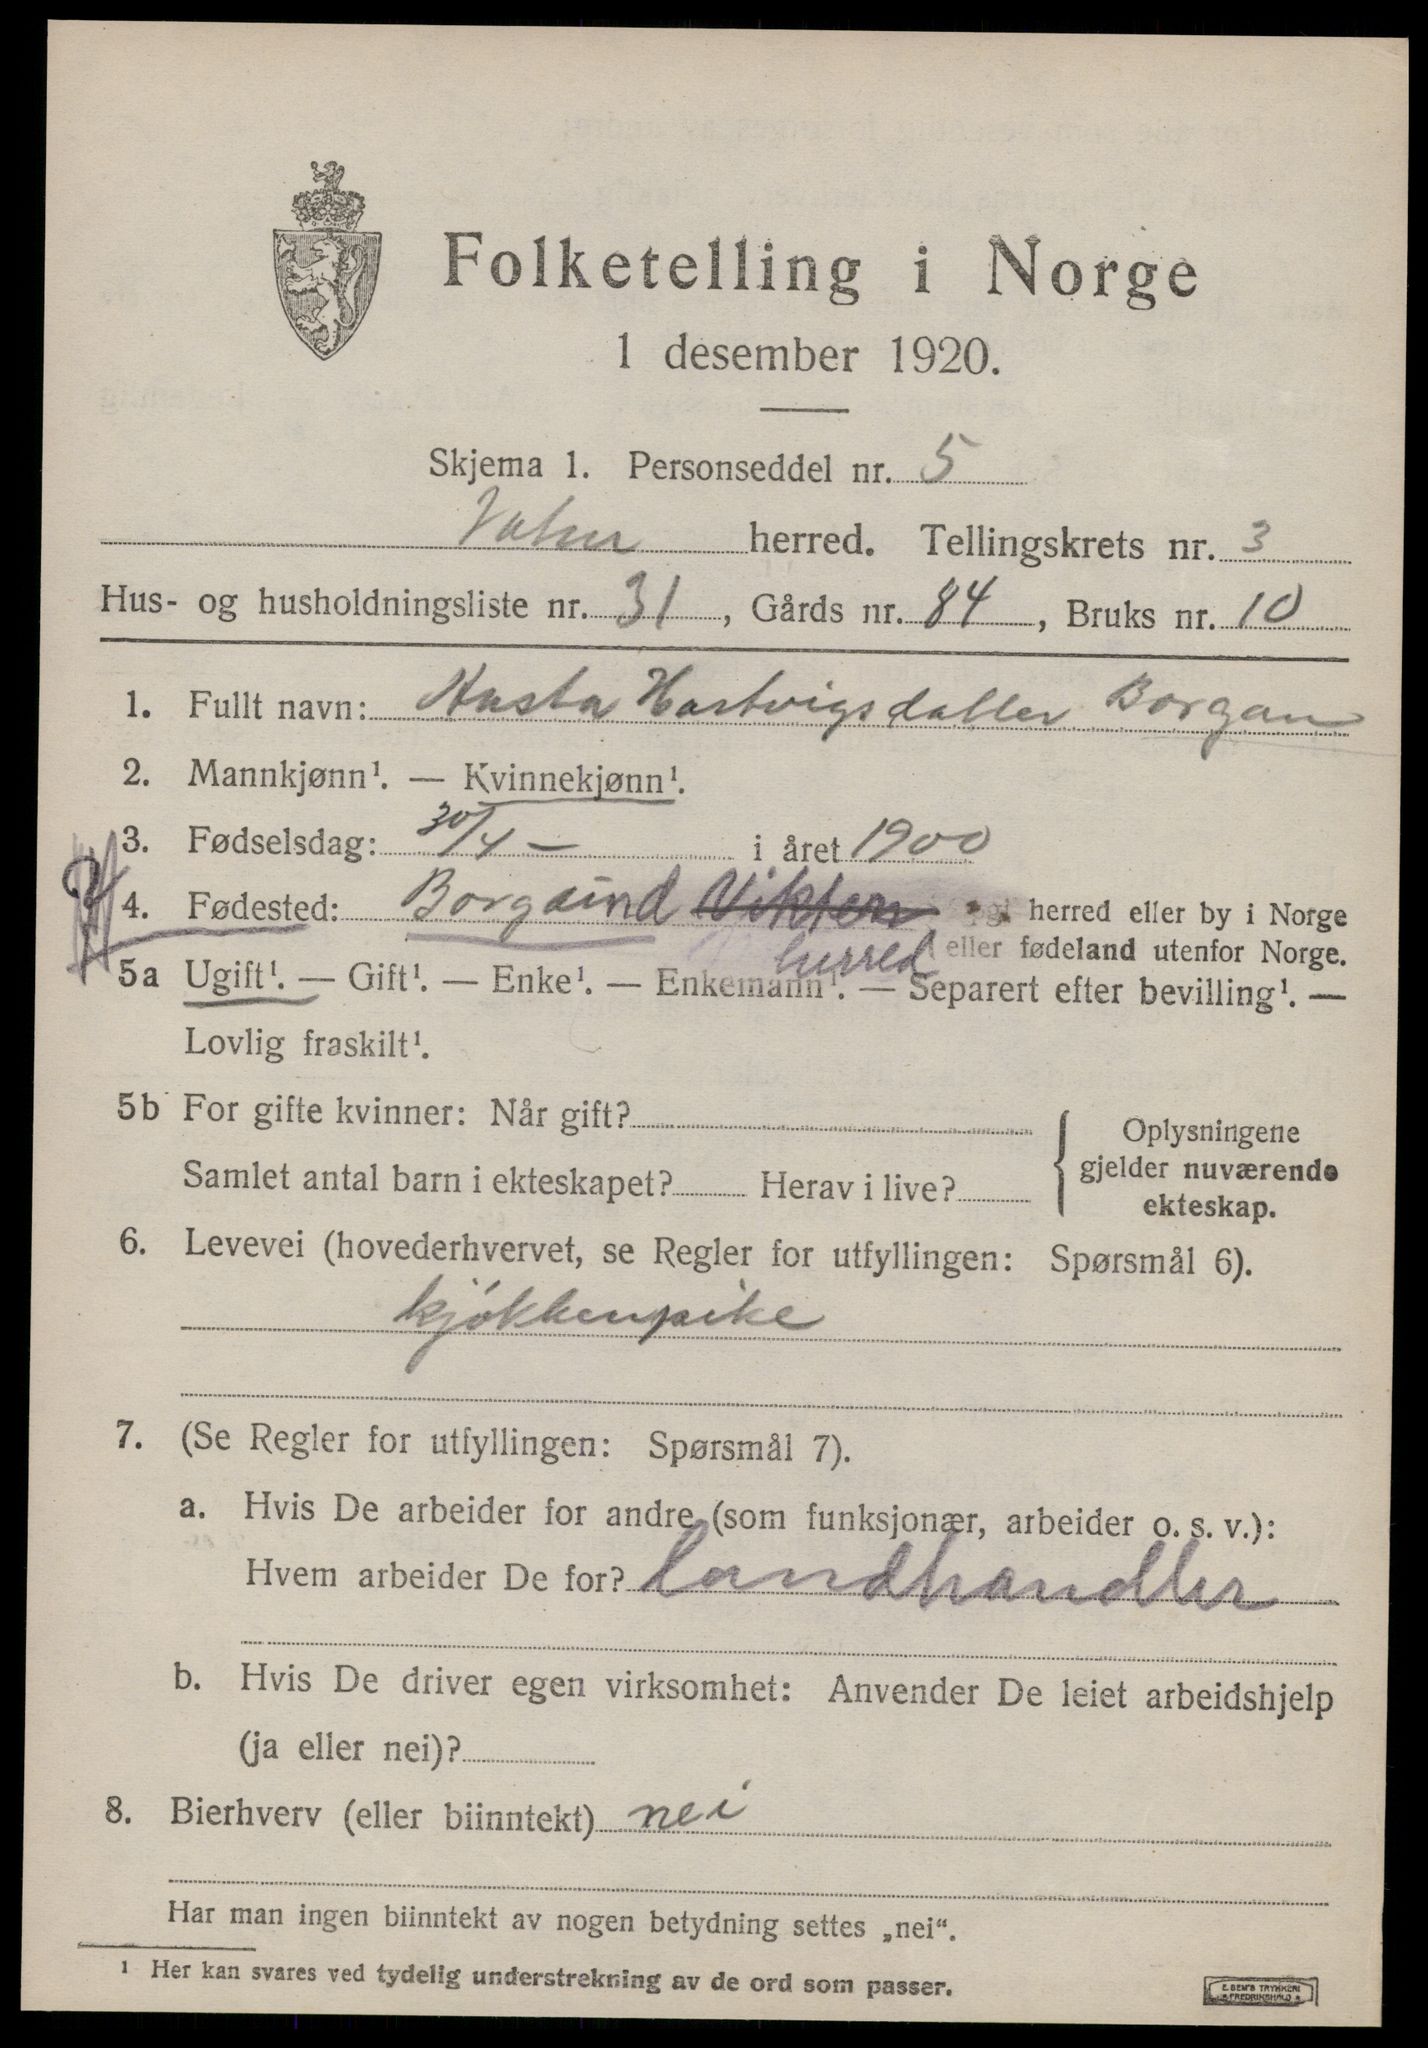 Folketelling i Norge
1 desember 1920.
Skjema 1. Personseddel nr. 5
herred. Tellingskrets nr. 3
Hus- og husholdningsliste nr. 31, Gårds nr. 84, Bruks nr. 10
1. Fullt navn: Hartvigsdatter Borgan
2. Mannkjønn¹. — Kvinnekjønn¹.
3. Fødselsdag: 30/4 — i året 1900
4. Fødested: Vikten herred eller by i Norge
herred eller fødeland utenfor Norge.
5a Ugift¹. — Gift¹. — Enke¹. — Enkemann¹. — Separert efter bevilling¹. —
Lovlig fraskilt¹.
5b For gifte kvinner: Når gift?
Samlet antal barn i ekteskapet? Herav i live?
Oplysningene
gjelder nuværende
ekteskap.
6. Levevei (hovederhvervet, se Regler for utfyllingen: Spørsmål 6).
kjøkkenpike
7. (Se Regler for utfyllingen: Spørsmål 7).
a. Hvis De arbeider for andre (som funksjonær, arbeider o. s. v.):
Hvem arbeider De for? landhandler
b. Hvis De driver egen virksomhet: Anvender De leiet arbeidshjelp
(ja eller nei)?
8. Bierhverv (eller biinntekt) nei
Har man ingen biinntekt av nogen betydning settes „nei“.
¹ Her kan svares ved tydelig understrekning av de ord som passer.
E. SEM'S TRYKKERI
FREDRIKSHALD